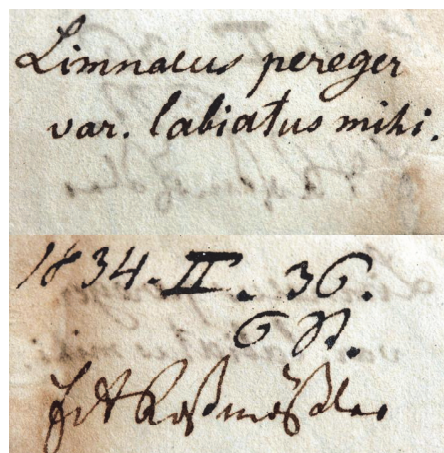 Limnaeus pereger
var. labiatus mihi.
1834. II. 36.
6 St.
F A Roßmäßler